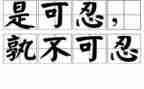 是可忍，
孰不可忍